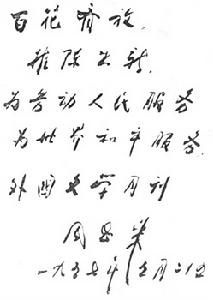 百花齐放,
推陈出新,
为劳动人民服务
为世界和平服务.
外国文学月刊
周
一九五七年五月二十